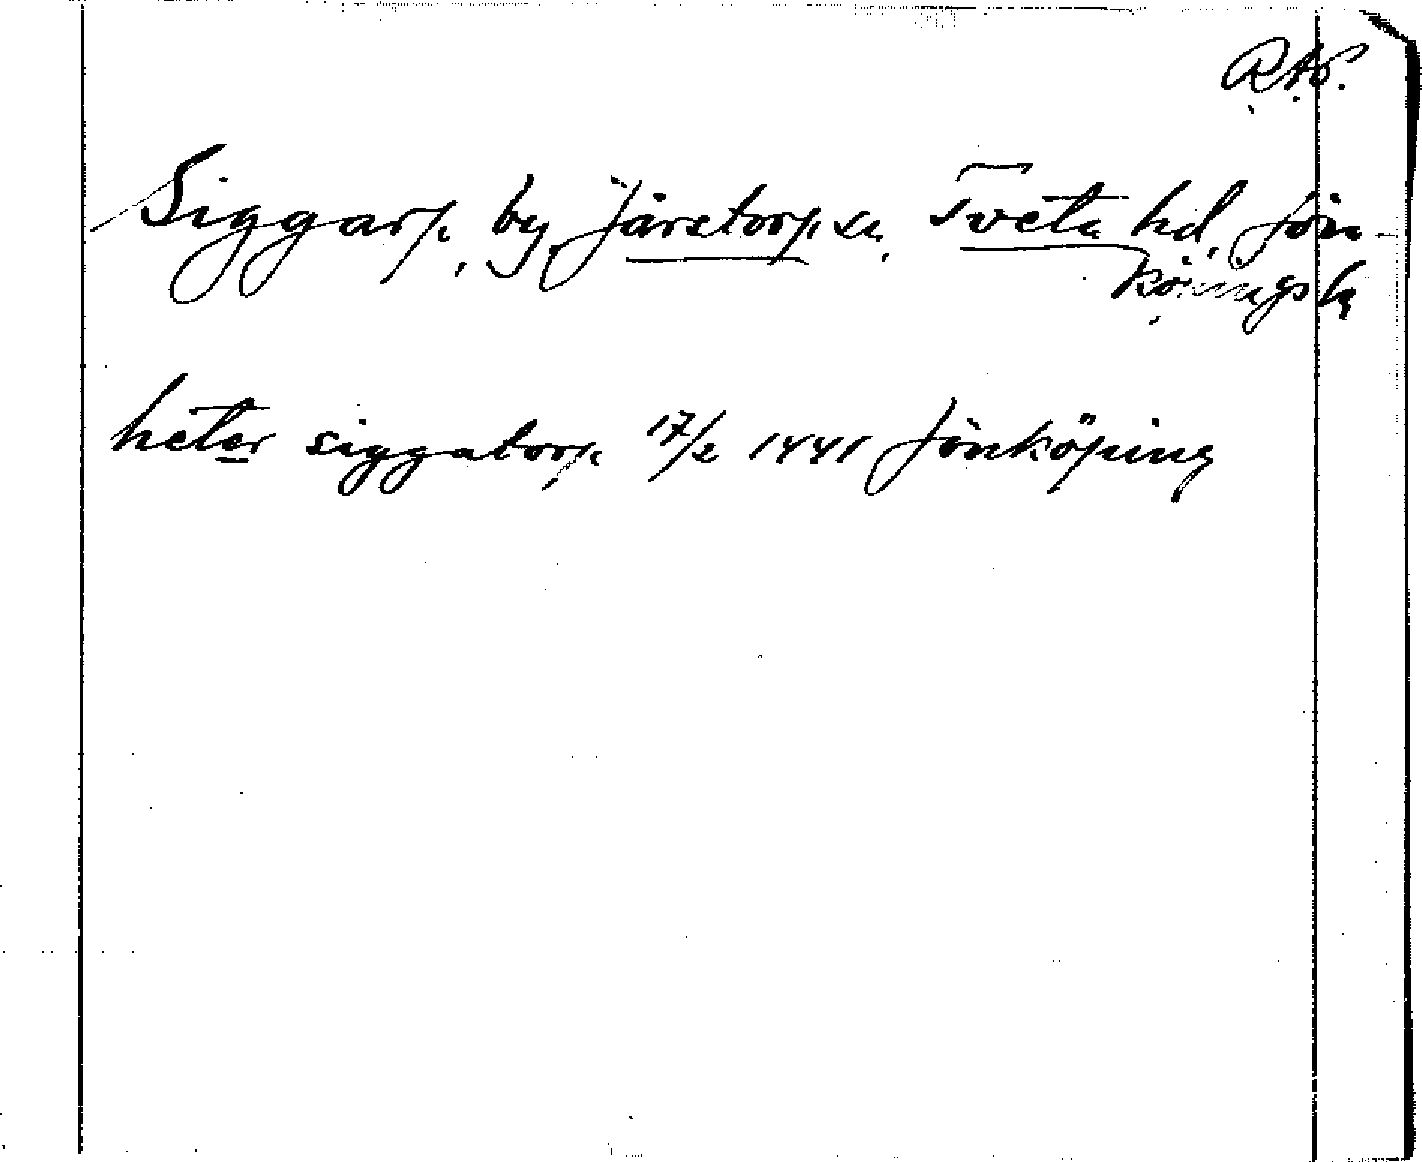 R.A.P.
Siggarp, by, Järstorp sn, Tveta hd, Jön-
köpings l.
heter siggatorp 17/2 1441 Jönköping